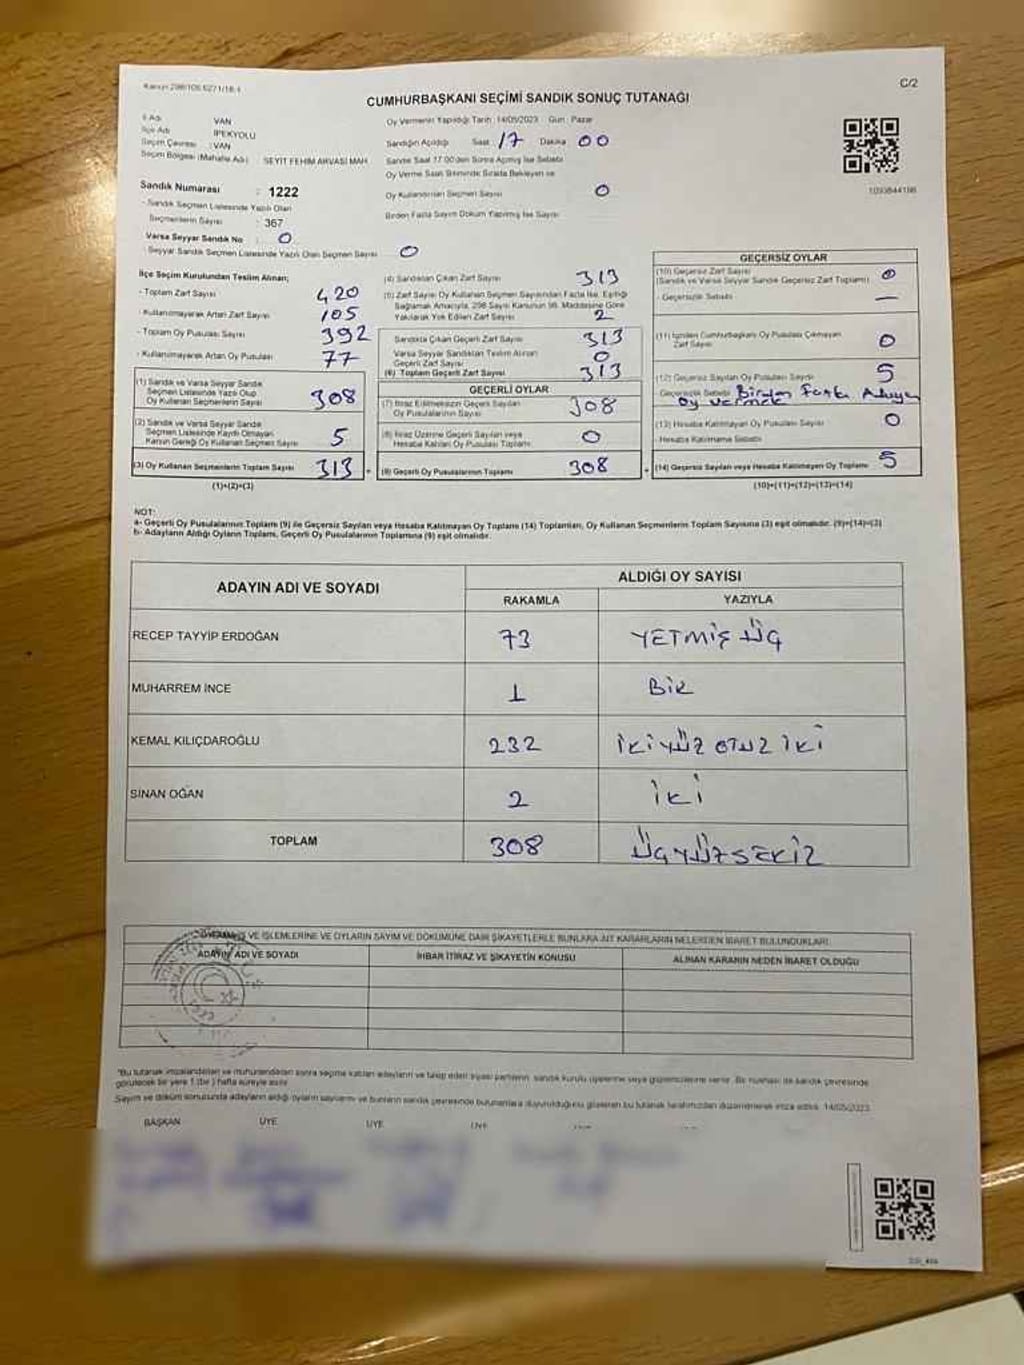 Kanun 298/105,6271/18-1
C/2
CUMHURBAŞKANI SEÇİMİ SANDIK SONUÇ TUTANAĞI
İl Adı VAN
İlçe Adı İPEKYOLU
Seçim Çevresi : VAN
Seçim Bölgesi (Mahalle Adı) : SEYİT FEHİM ARVASİ MAH.
Oy Vermenin Yapıldığı Tarih: 14/05/2023 Gün: Pazar
Sandığın Açıldığı Saat 17 Dakika 00
Sandık Saat 17:00'den Sonra Açılmış İse Sebebi
Oy Verme Saati Bitiminde Sırada Bekleyen ve
Oy Kullandırılan Seçmen Sayısı 0
Birden Fazla Sayım Döküm Yapılmış İse Sayısı
1093844196
Sandık Numarası : 1222
- Sandık Seçmen Listesinde Yazılı Olan
Seçmenlerin Sayısı : 367
Varsa Seyyar Sandık No : 0
- Seyyar Sandık Seçmen Listesinde Yazılı Olan Seçmen Sayısı 0
İlçe Seçim Kurulundan Teslim Alınan;
- Toplam Zarf Sayısı 420
- Kullanılmayarak Artan Zarf Sayısı 105
- Toplam Oy Pusulası Sayısı 392
- Kullanılmayarak Artan Oy Pusulası 77
(1) Sandık ve Varsa Seyyar Sandık
Seçmen Listesinde Yazılı Olup
Oy Kullanan Seçmenlerin Sayısı 308
(2) Sandık ve Varsa Seyyar Sandık
Seçmen Listesinde Kayıtlı Olmayan
Kanun Gereği Oy Kullanan Seçmen Sayısı 5
(3) Oy Kullanan Seçmenlerin Toplam Sayısı 313
(1)+(2)=(3)
(4) Sandıktan Çıkan Zarf Sayısı 313
(5) Zarf Sayısı Oy Kullanan Seçmen Sayısından Fazla İse, Eşitliği
Sağlamak Amacıyla, 298 Sayılı Kanunun 98. Maddesine Göre
Yakılarak Yok Edilen Zarf Sayısı 2
Sandıkta Çıkan Geçerli Zarf Sayısı 313
Varsa Seyyar Sandıktan Teslim Alınan
Geçerli Zarf Sayısı 0
(6) Toplam Geçerli Zarf Sayısı 313
GEÇERLİ OYLAR
(7) İtiraz Edilmeksizin Geçerli Sayılan
Oy Pusulalarının Sayısı 308
(8) İtiraz Üzerine Geçerli Sayılan veya
Hesaba Katılan Oy Pusulası Toplamı 0
(9) Geçerli Oy Pusulalarının Toplamı 308
GEÇERSİZ OYLAR
(10) Geçersiz Zarf Sayısı
(Sandık ve Varsa Seyyar Sandık Geçersiz Zarf Toplamı) 0
- Geçersizlik Sebebi —
(11) İçinden Cumhurbaşkanı Oy Pusulası Çıkmayan
Zarf Sayısı 0
(12) Geçersiz Sayılan Oy Pusulası Sayısı 5
Geçersizlik Sebebi Birden Fazla Adaya
oy vermek
(13) Hesaba Katılmayan Oy Pusulası Sayısı 0
- Hesaba Katılmama Sebebi
(14) Geçersiz Sayılan veya Hesaba Katılmayan Oy Toplamı 5
(10)+(11)+(12)+(13)=(14)
NOT:
a- Geçerli Oy Pusulalarının Toplamı (9) ile Geçersiz Sayılan veya Hesaba Katılmayan Oy Toplamı (14) Toplamları, Oy Kullanan Seçmenlerin Toplam Sayısına (3) eşit olmalıdır. (9)+(14)=(3)
b- Adayların Aldığı Oyların Toplamı, Geçerli Oy Pusulalarının Toplamına (9) eşit olmalıdır.
ADAYIN ADI VE SOYADI
ALDIĞI OY SAYISI
RAKAMLA YAZIYLA
RECEP TAYYİP ERDOĞAN 73 YETMİŞ ÜÇ
MUHARREM İNCE 1 BİR
KEMAL KILIÇDAROĞLU 232 İKİYÜZ OTUZ İKİ
SİNAN OĞAN 2 İKİ
TOPLAM 308 ÜÇYÜZSEKİZ
VE İŞLEMLERİNE VE OYLARIN SAYIM VE DÖKÜMÜNE DAİR ŞİKAYETLERLE BUNLARA AİT KARARLARIN NELERDEN İBARET BULUNDUKLARI
ADAYIN ADI VE SOYADI İHBAR İTİRAZ VE ŞİKAYETİN KONUSU ALINAN KARARIN NEDEN İBARET OLDUĞU
*Bu tutanak imzalandıktan ve mühürlendikten sonra seçime katılan adayların ve talep eden siyasi partilerin, sandık kurulu üyelerine veya gözlemcilerine verilir. Bir nüshası da sandık çevresinde
görülecek bir yere 1 (bir) hafta süreyle asılır.
Sayım ve döküm sonucunda adayların aldığı oyların sayılarını ve bunların sandık çevresinde bulunanlara duyurulduğunu gösteren bu tutanak tarafımızdan düzenlenerek imza edildi. 14/05/2023
BAŞKAN ÜYE ÜYE ÜYE